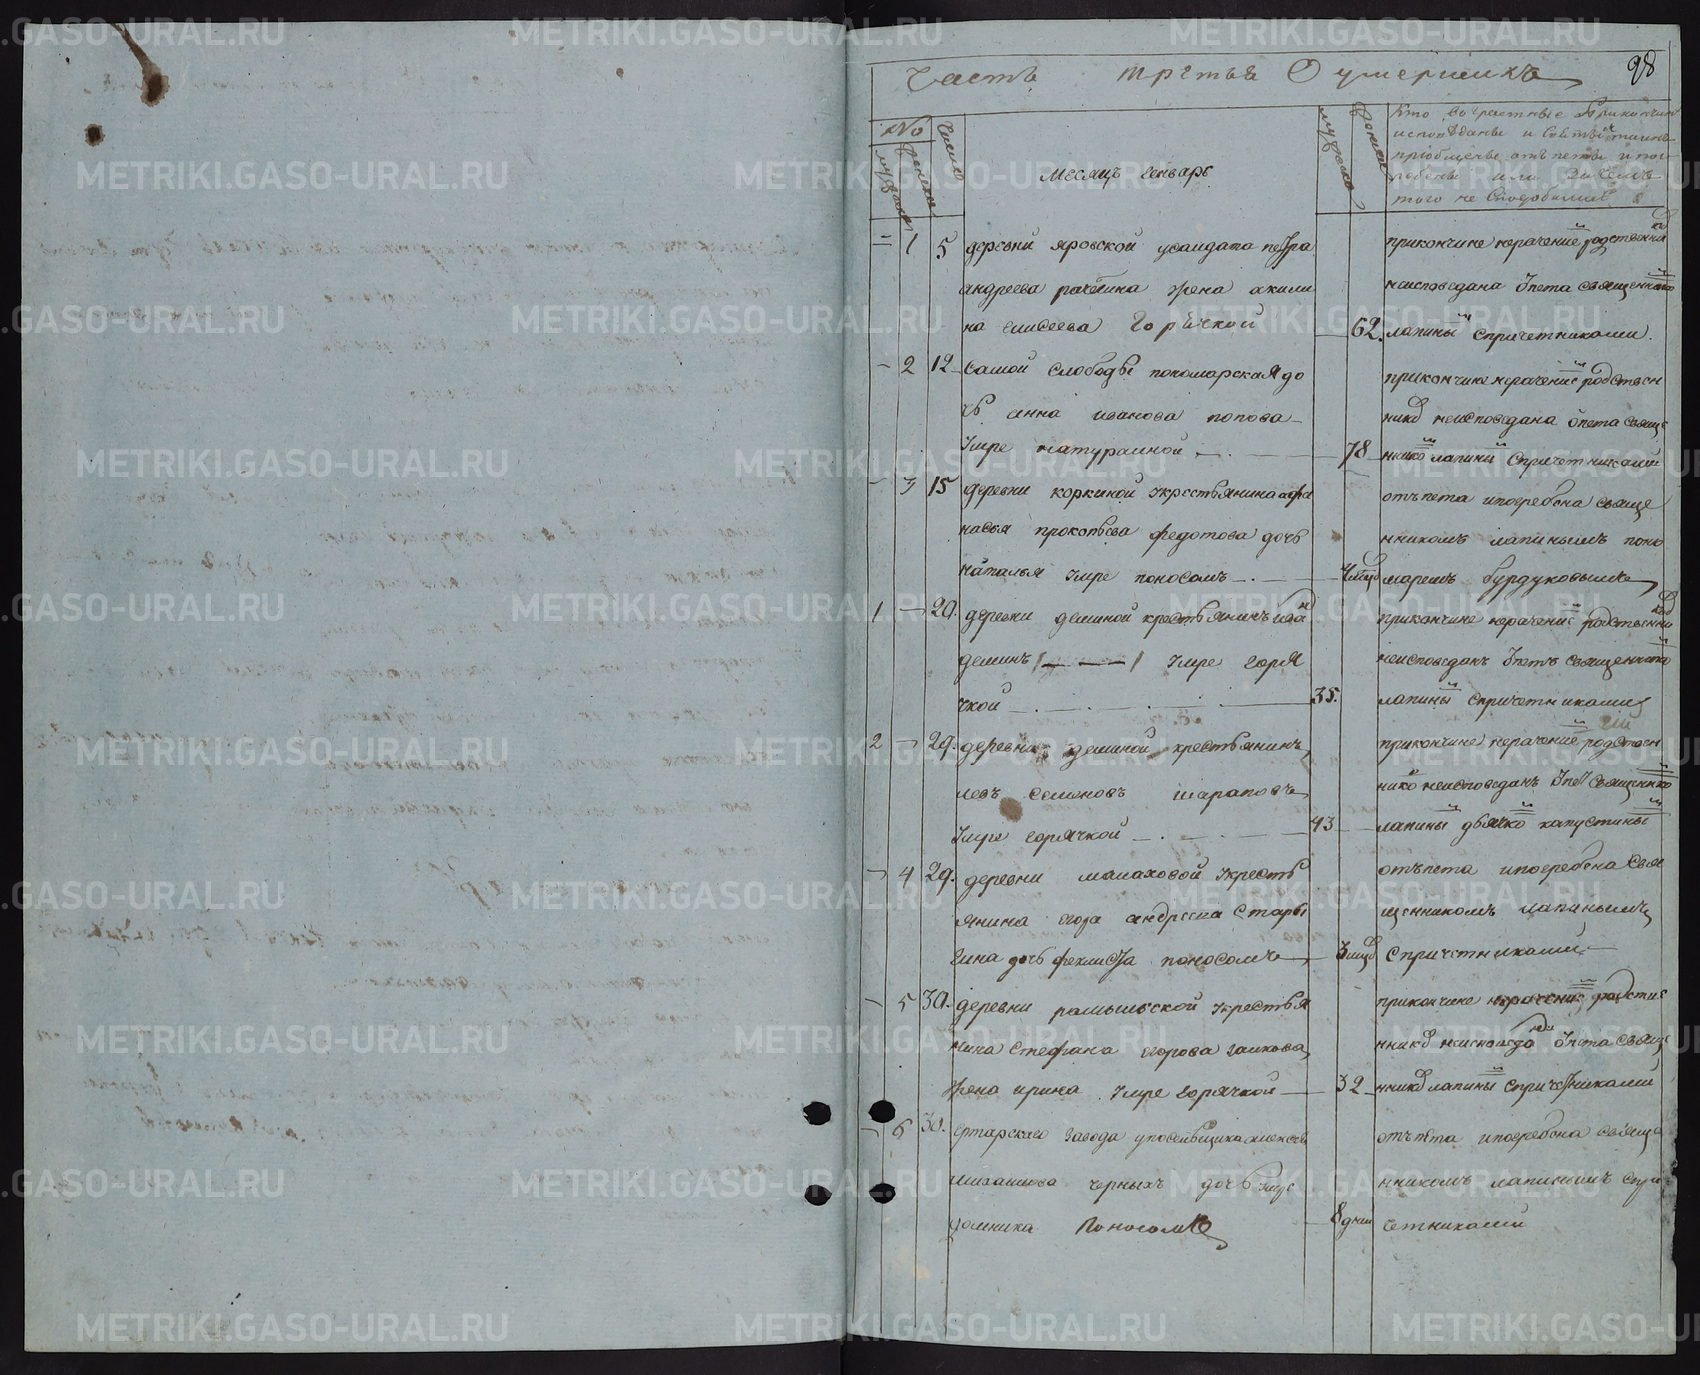 98
Часть третья О умершихъ
№
мужеска
женска
число
Месяцъ генварь
мужеска
женска
Кто возрастные
исповѣданы и
приобщены отпеты и пог
ребены или
того не сподобились
= 1 5 деревни яровской усалдата петра
андреева рачетина жена акили
на елисеева горячкой
62.
прикончине нерачениемъ родственник
неисповедана Упета священником
лапиным спричетниками.
- 2 12 самой слободы пономарская до
чь анна иванова попова
Умре натуралной
78
прикончине нерачением родствен
ником неисповедана Упета свяще
нником лапиным спричетниками
- 3 15 деревни коркиной Укрестьянина афа
насья прокопьева федотова дочь
наталья Умре поносомъ
отпета ипогребена свяще
нникомъ лапинымъ поно
маремъ бурдуковымъ
1 - 20. деревни деминой крестьянинъ иван
деминъ Умре горя
чкой
35.
прикончине нерачением родственник
неисповеданъ Упетъ священником
лапиным спричетниками
2 - 29. деревни деминой крестьянинъ
левъ семеновъ шараповъ
Умре горячкой
43
прикончине нерачением родствен
ником неисповеданъ Упет священником
лапиным дьячком капустиным
- 4 29. деревни малаховой Укресть
янина егора андреева стары
гина дочь феклиста поносомъ
отпета ипогребена свя
щенникомъ лапинымъ
спричетниками
- 5 30. деревни рамыльской Укрестья
нина стефана егорова галкова
жена ирина Умре горячкой
32
прикончине нерачением родстве
нником неисповедана Упета свяще
нником лапиным спричетниками
- 6 30. ертарскаго завода упоселщика алексея
михайлова черныхъ дочь Умре
домника поносомъ
8 дней
отпета ипогребена свяще
нникомъ лапинымъ спри
четниками
METRIKI.GASO-URAL.RU